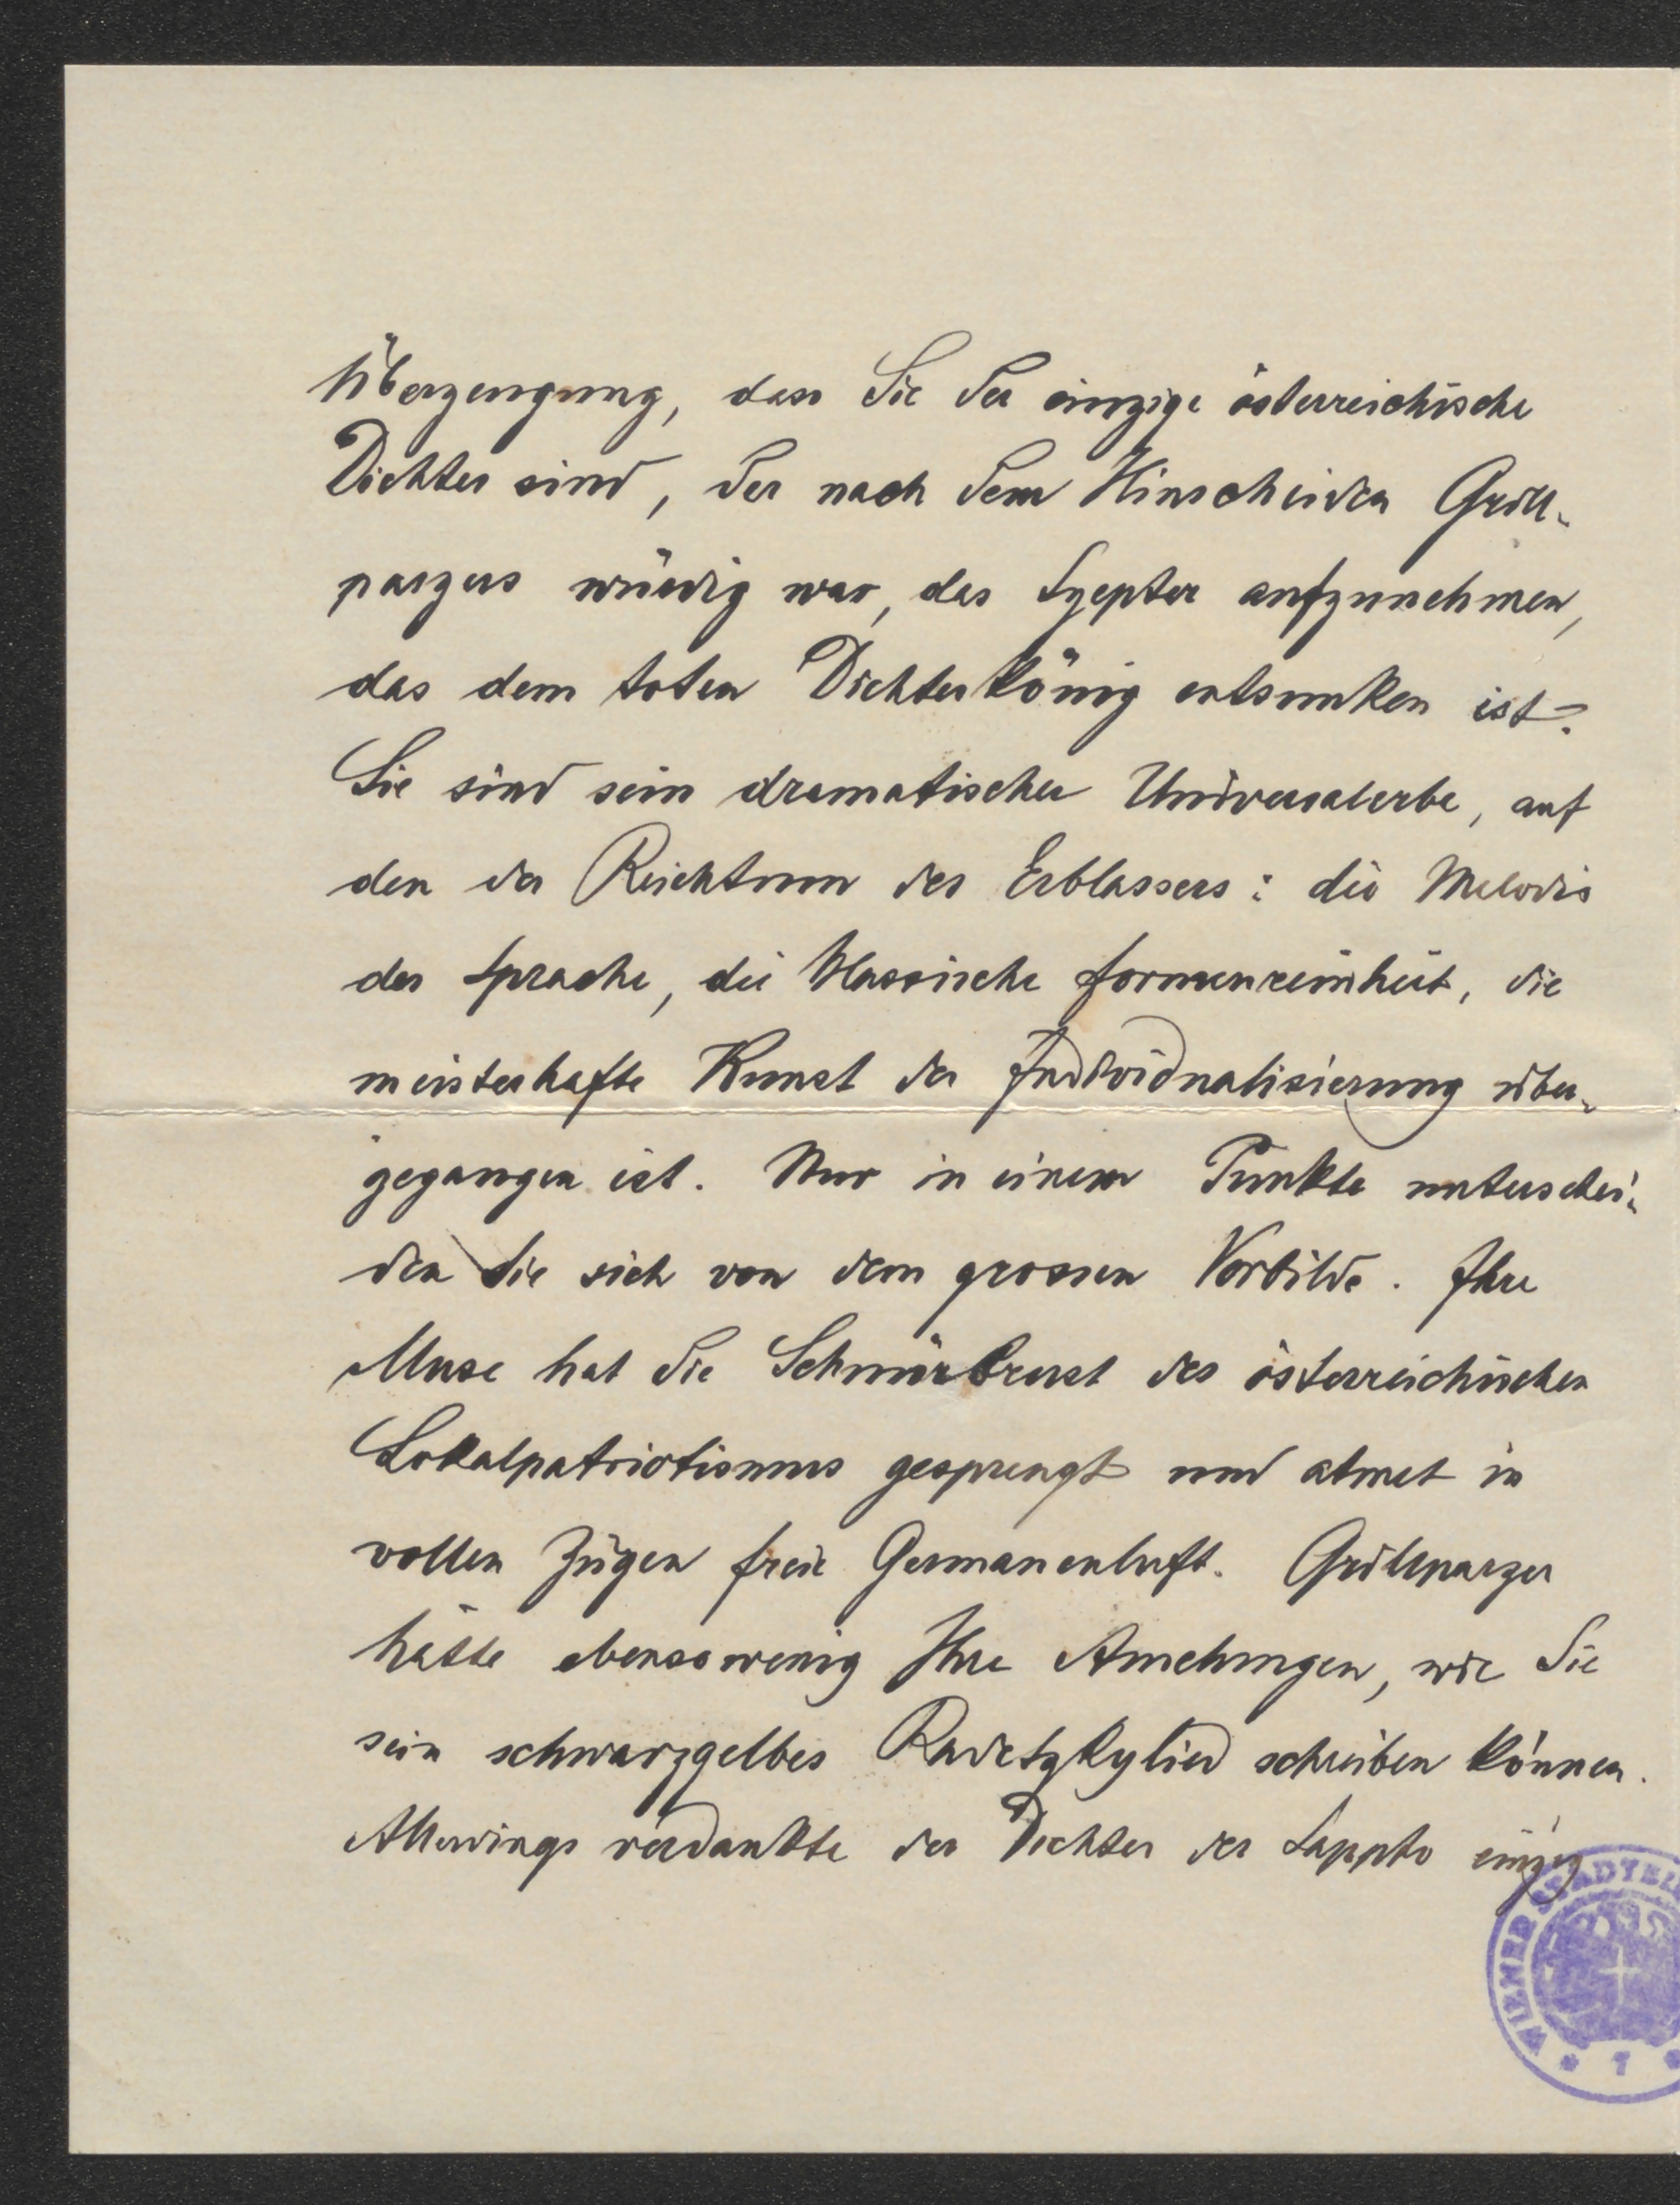 Überzeugung, dass Sie der einzige österreichische
Dichter sind, der nach dem Hinscheiden Grill-
parzers würdig war, das Szepter aufzunehmen,
das dem toten Dichterkönig entsunken ist.
Sie sind sein dramatischer Universalerbe, auf
den der Reichtum des Erblassers: die Melodie
der Sprache, die klassische Formenreinheit, die
meisterhafte Kunst der Individualisierung über-
gegangen ist. Nur in einem Punkte unterschei-
den Sie sich von dem grossen Vorbilde. Ihre
Muse hat die Schnürbrust des österreichischen
Lokalpatriotismus gesprengt und atmet in
vollen Zügen freie Germanenluft. Grillparzer
hätte ebensowenig Ihre Amelungen, wie Sie
sein schwarzgelbes Radetzkylied schreiben können.
Allerdings verdankte der Dichter der Sappho einzig
WIENER STADTBI
* 7 *